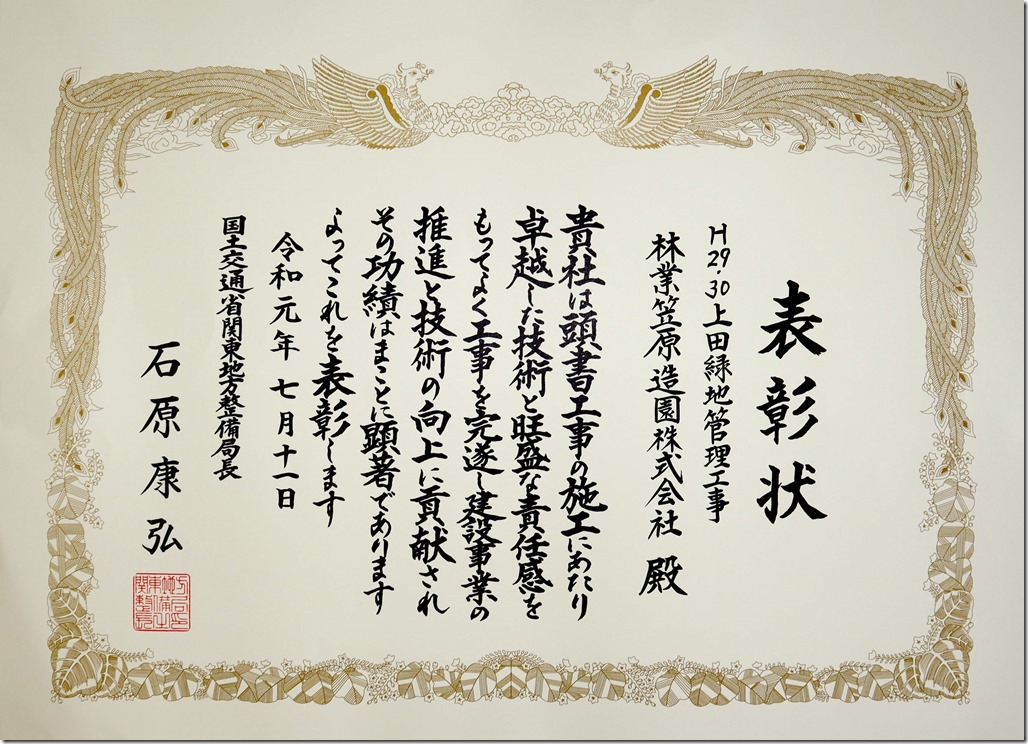 表彰状
H29・30上田緑地管理工事
林業笠原造園株式会社 殿
貴社は頭書工事の施工にあたり
卓越した技術と旺盛な責任感を
もってよく工事を完遂し建設事業の
推進と技術の向上に貢献され
その功績はまことに顕著であります
よってこれを表彰します
令和元年七月十一日
国土交通省関東地方整備局長
石原康弘